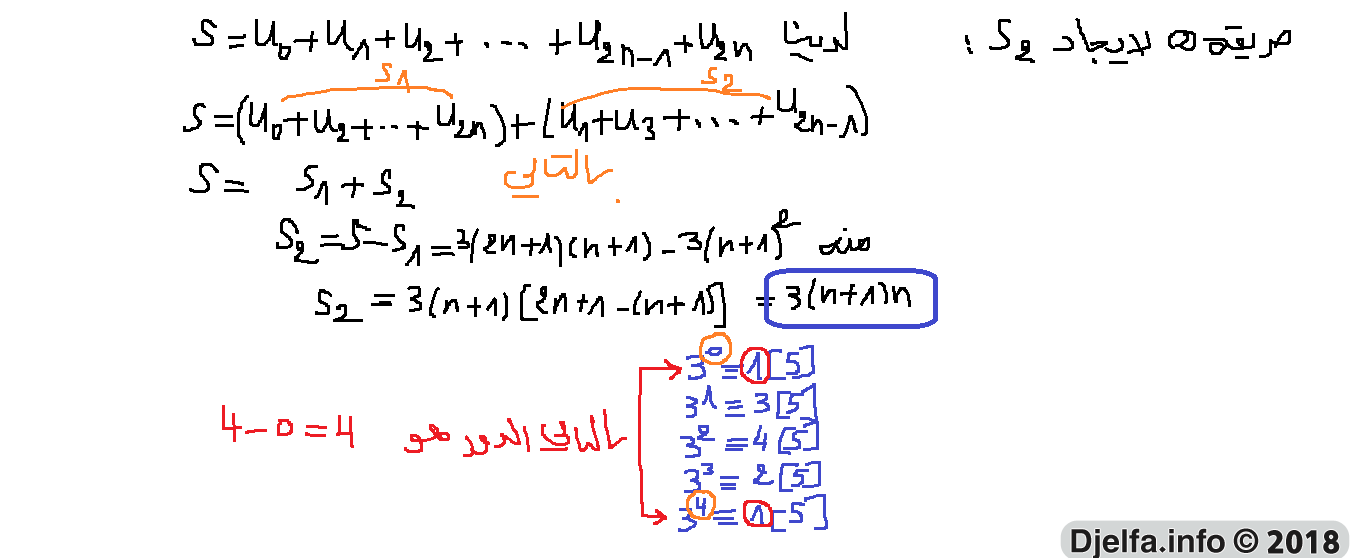 طريقة 2 لإيجاد S₂ :
لدينا S = U₀ + U₁ + U₂ + ... + U₂ₙ₋₁ + U₂ₙ
S₁ S₂
S = (U₀ + U₂ + ... + U₂ₙ) + (U₁ + U₃ + ... + U₂ₙ₋₁)
S = S₁ + S₂ بالتالي
منه S₂ = S - S₁ = 3(2n+1)(n+1) - 3(n+1)²
S₂ = 3(n+1)[2n+1-(n+1)] = 3(n+1)n
3⁰ ≡ 1[5]
3¹ ≡ 3[5]
3² ≡ 4[5]
بالتالي الدور هو 4-0=4
3³ ≡ 2[5]
3⁴ ≡ 1[5]
Djelfa.info © 2018